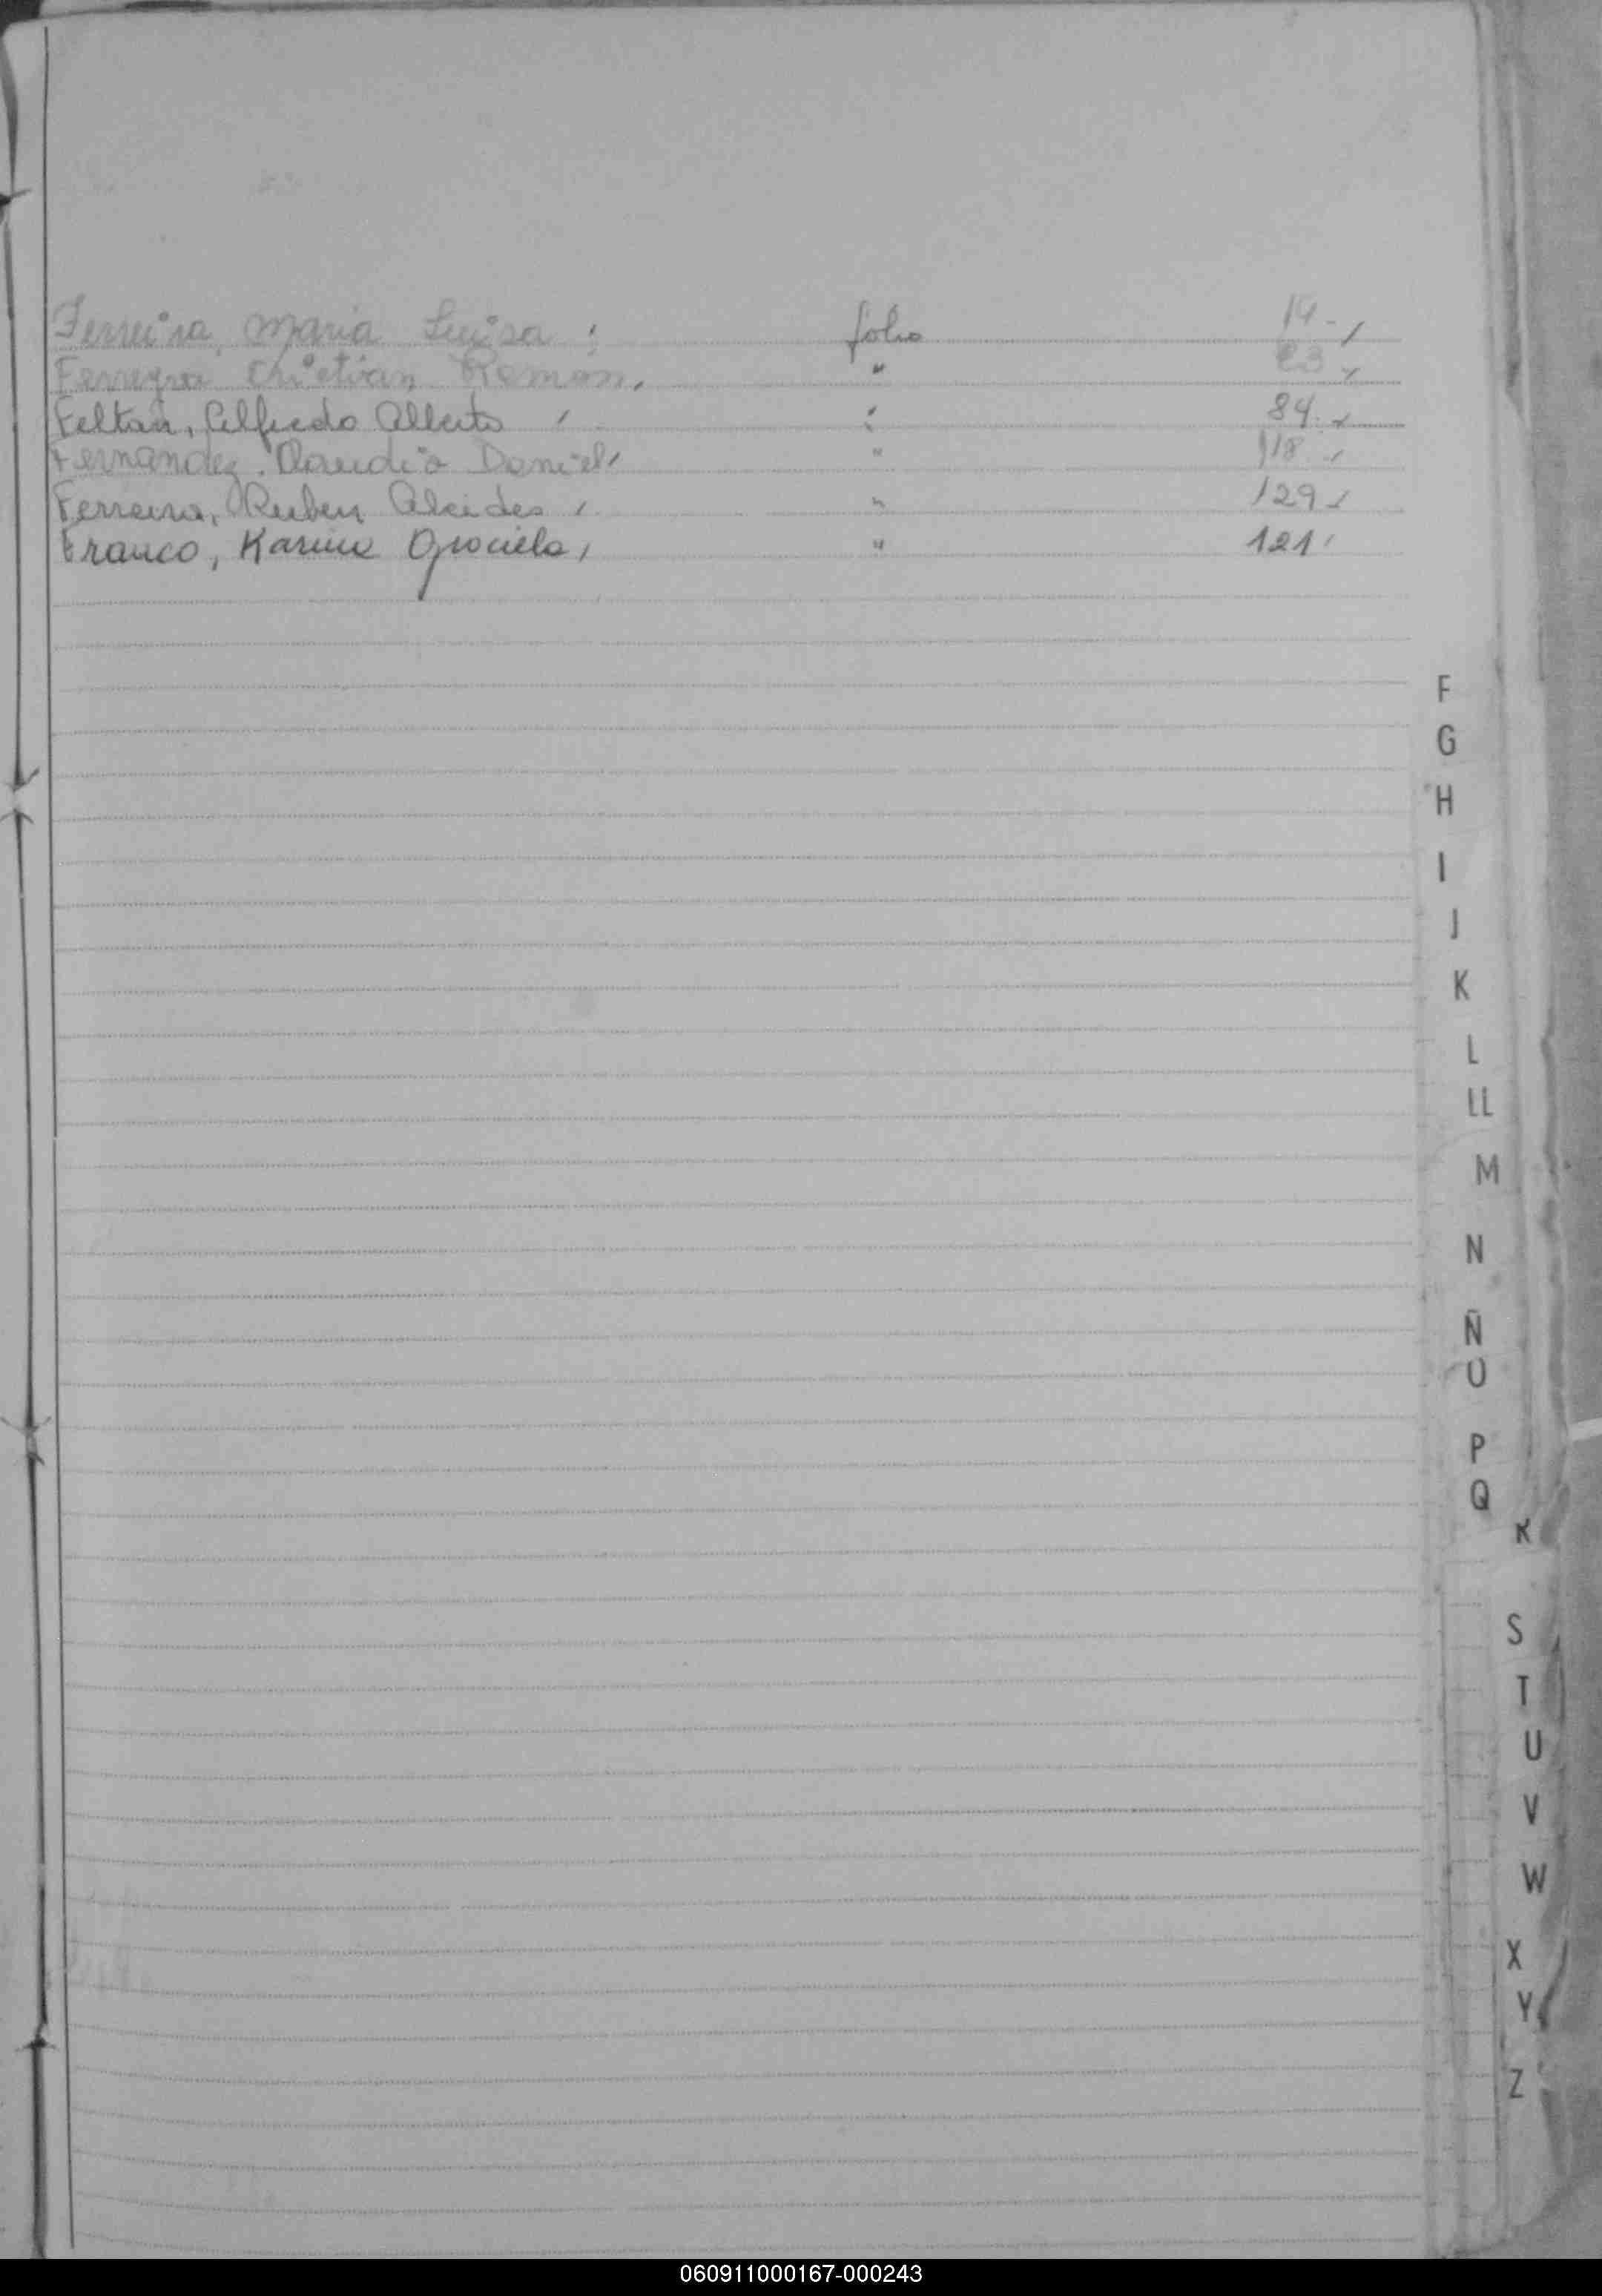 Ferreira, Maria Luisa, folio 14 -,
Ferreyra Christian Ramon, " 23 -,
Feltan, Alfredo Alberto, " 84 -,
Fernandez, Claudio Daniel, " 118 -,
Ferreira, Ruben Alcides, " 129 -
Franco, Karina Graciela, " 121,
F
G
H
I
J
K
L
LL
M
N
Ñ
O
P
Q
R
S
T
U
V
W
X
Y
Z
060911000167-000243